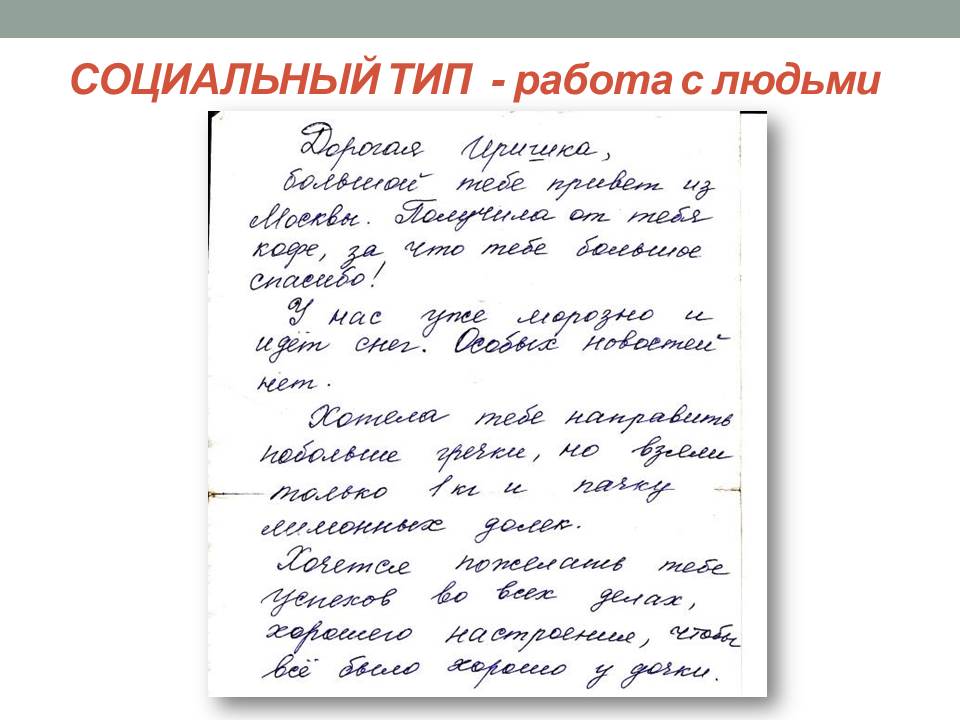 СОЦИАЛЬНЫЙ ТИП - работа с людьми
Дорогая Иришка,
большой тебе привет из
Москвы. Получила от тебя
кофе, за что тебе большое
спасибо!
У нас уже морозно и
идёт снег. Особых новостей
нет.
Хотела тебе направить
побольше гречки, но взяли
только 1 кг и пачку
лимонных долек.
Хочется пожелать тебе
успехов во всех делах,
хорошего настроения, чтобы
всё было хорошо у дочки.